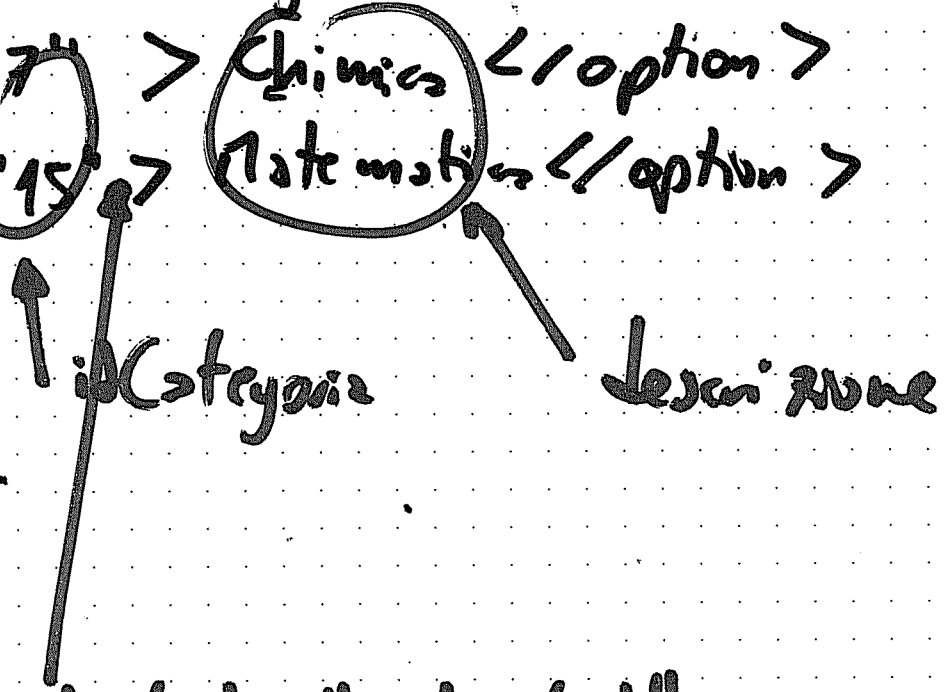 7" > Chimica </option>
"15" > Matematica </option>
idCategoria
descrizione